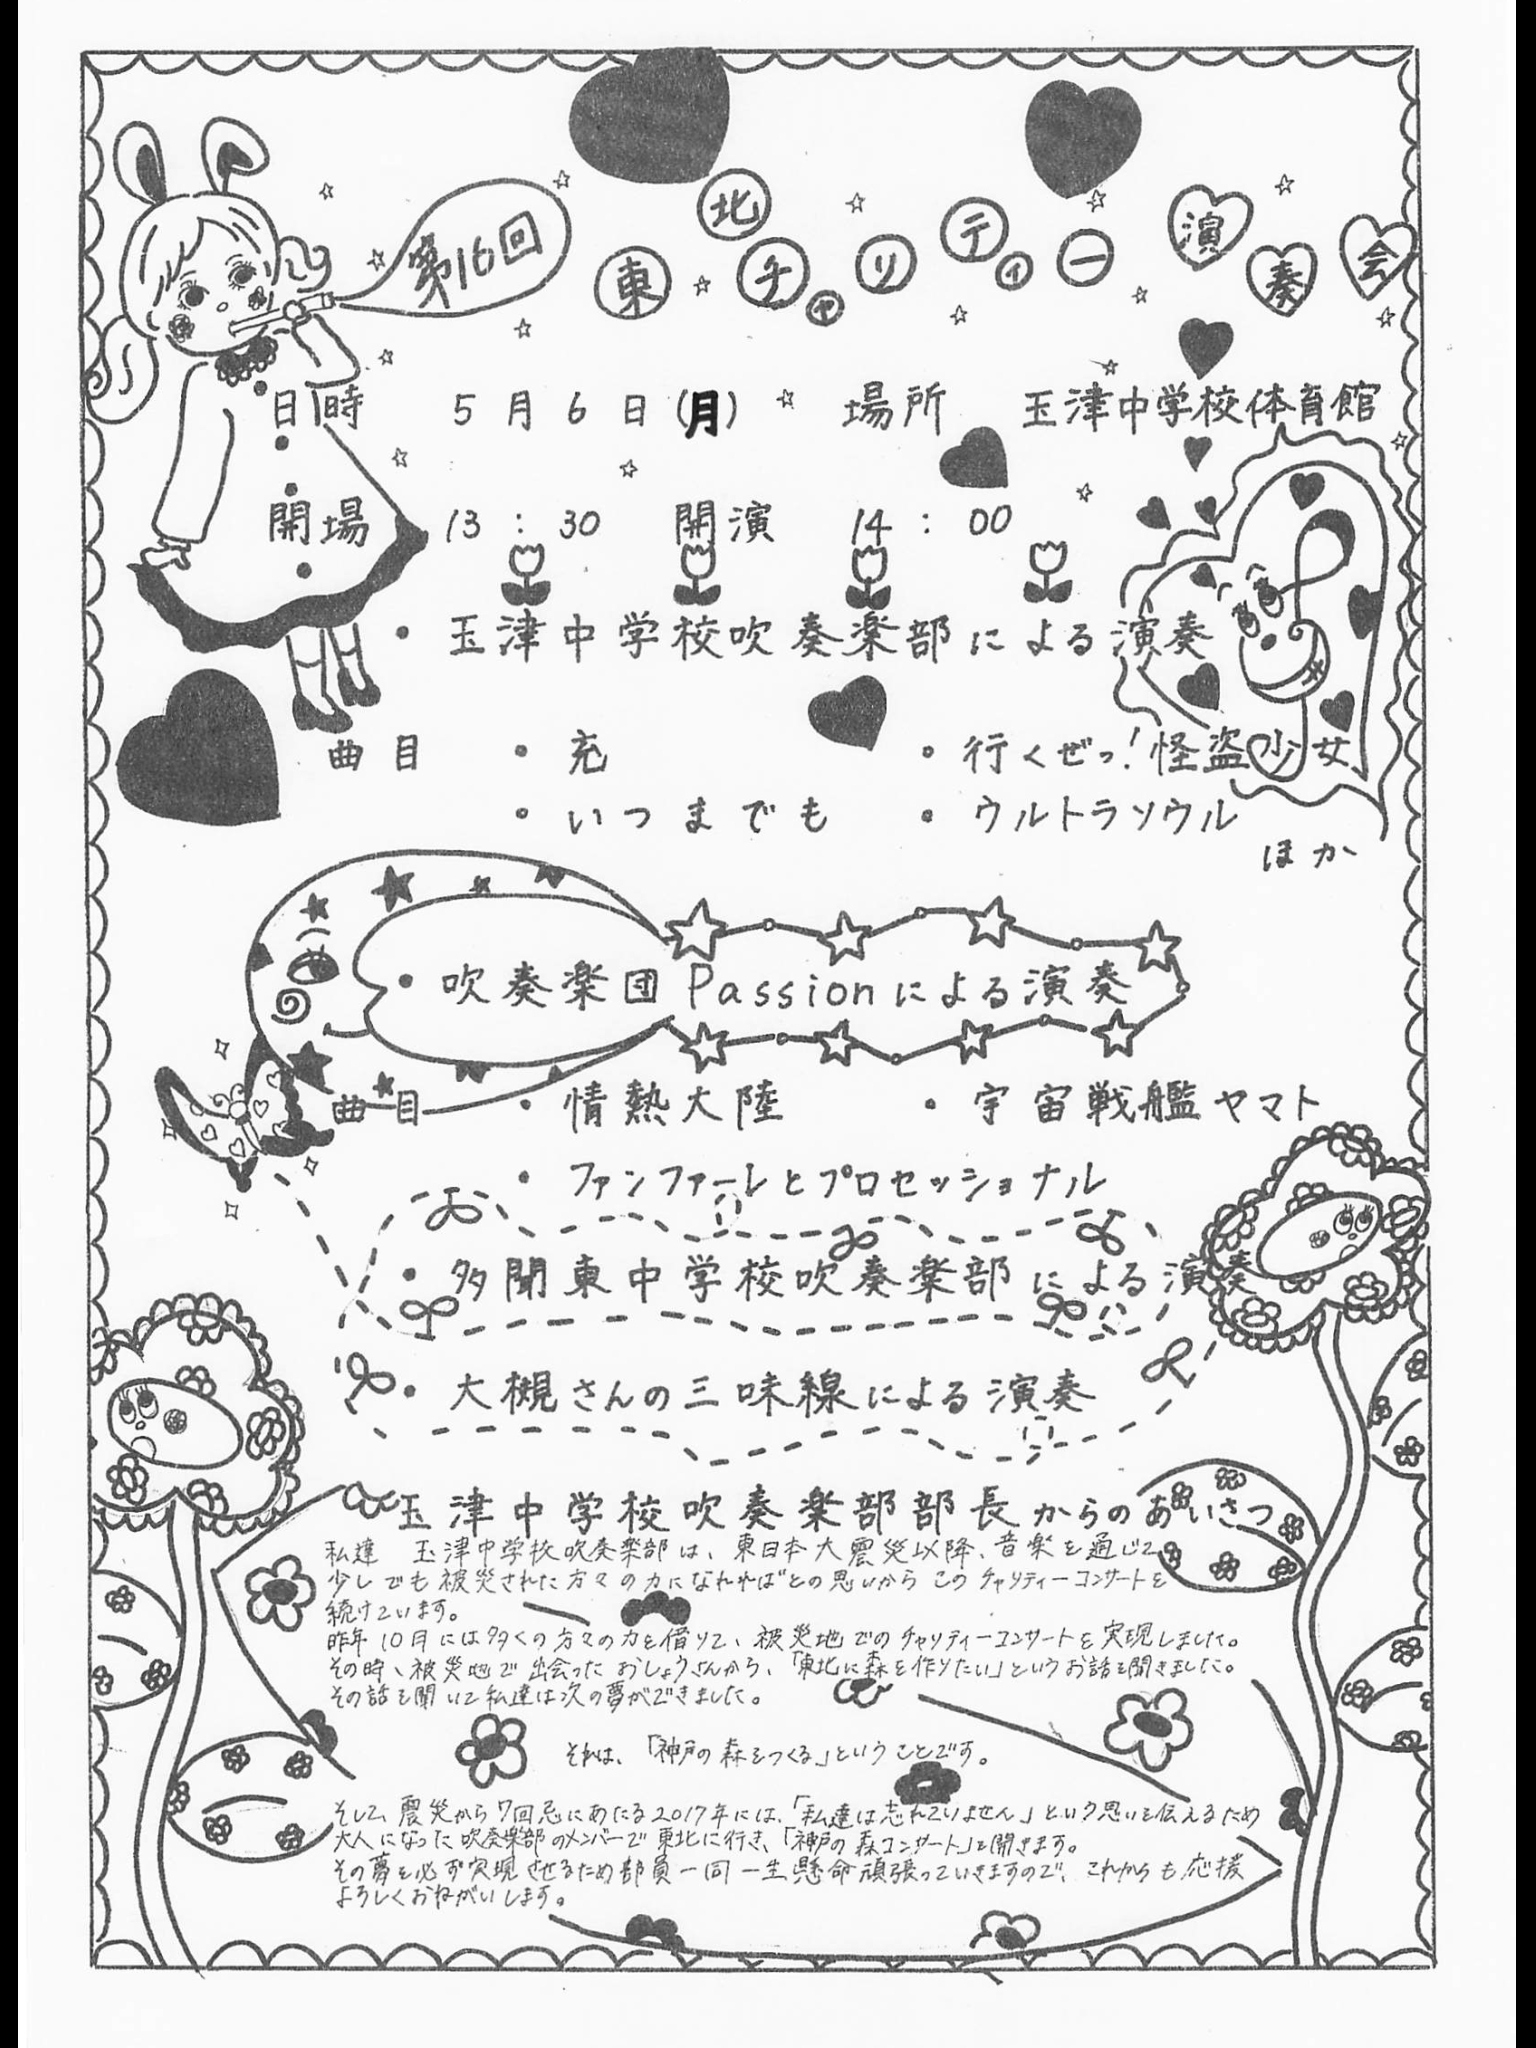 第16回
東北チャリティー演奏会
日時 5月6日(月) 場所 玉津中学校体育館
開場 13:30 開演 14:00
・玉津中学校吹奏楽部による演奏
曲目 ・充 ・行くぜっ!怪盗少女
・いつまでも ・ウルトラソウル
ほか
・吹奏楽団Passionによる演奏
曲目 ・情熱大陸 ・宇宙戦艦ヤマト
・ファンファーレとプロセッショナル
・多聞東中学校吹奏楽部による演奏
・大槻さんの三味線による演奏
玉津中学校吹奏楽部部長からのあいさつ
私達 玉津中学校吹奏楽部は、東日本大震災以降、音楽を通じて
少しでも被災された方々の力になれればとの思いからこのチャリティーコンサートを
続けています。
昨年10月には多くの方々の力を借りて、被災地でのチャリティーコンサートを実現しました。
その時、被災地で出会ったおしょうさんから、「東北に森を作りたい」というお話を聞きました。
その話を聞いて私達は次の夢ができました。
それは、「神戸の森をつくる」ということです。
そして震災から7回忌にあたる2017年には、「私達は忘れていません」という思いを伝えるため
大人になった吹奏楽部のメンバーで東北に行き、「神戸の森コンサート」を開きます。
その夢を必ず実現させるため部員一同一生懸命頑張っていきますので、これからも応援
よろしくおねがいします。